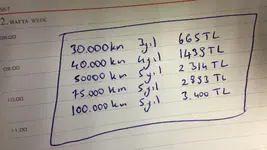 2. HAFTA WEEK
30.000 km 3yıl 665 TL
08:00
40.000 km 4yıl 1433 TL
09:00
50000 km 5yıl 2314 TL
75.000 km 5yıl 2853 TL
10:00
100.000 km 5yıl 3.400 TL
11:00